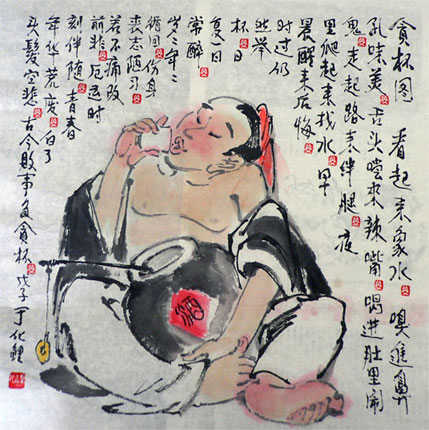 贪杯图 看起来象水 嗅进鼻
孔味美 舌头嚐来辣嘴 喝进肚里闹
鬼 走起路来绊腿 夜
里爬起来找水 早
晨醒来后悔
时过仍
此举
杯日
复一日
常醉
岁二年二
循回伤身
丧志随习
若不痛改
前非厄运时
刻伴随青春
年华荒度白了
头髮空悲 古今败事多贪杯 戊子丁化鲤
酒